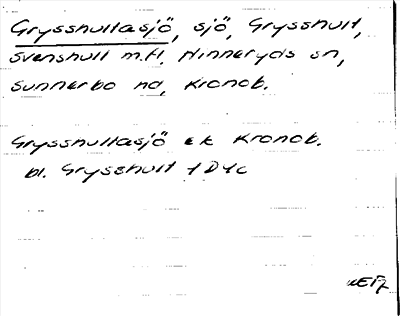 Grysshultasjö, sjö, Grysshult,
Svenshult m.fl. Hinneryds sn,
Sunnerbo hd, Kronob.
Grysshultasjö ek Kronob.
bl. Grysshult 1D4c